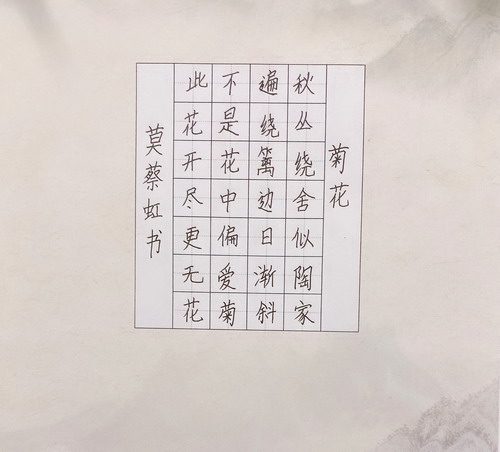 菊花
秋丛绕舍似陶家
遍绕篱边日渐斜
不是花中偏爱菊
此花开尽更无花
莫蔡虹书